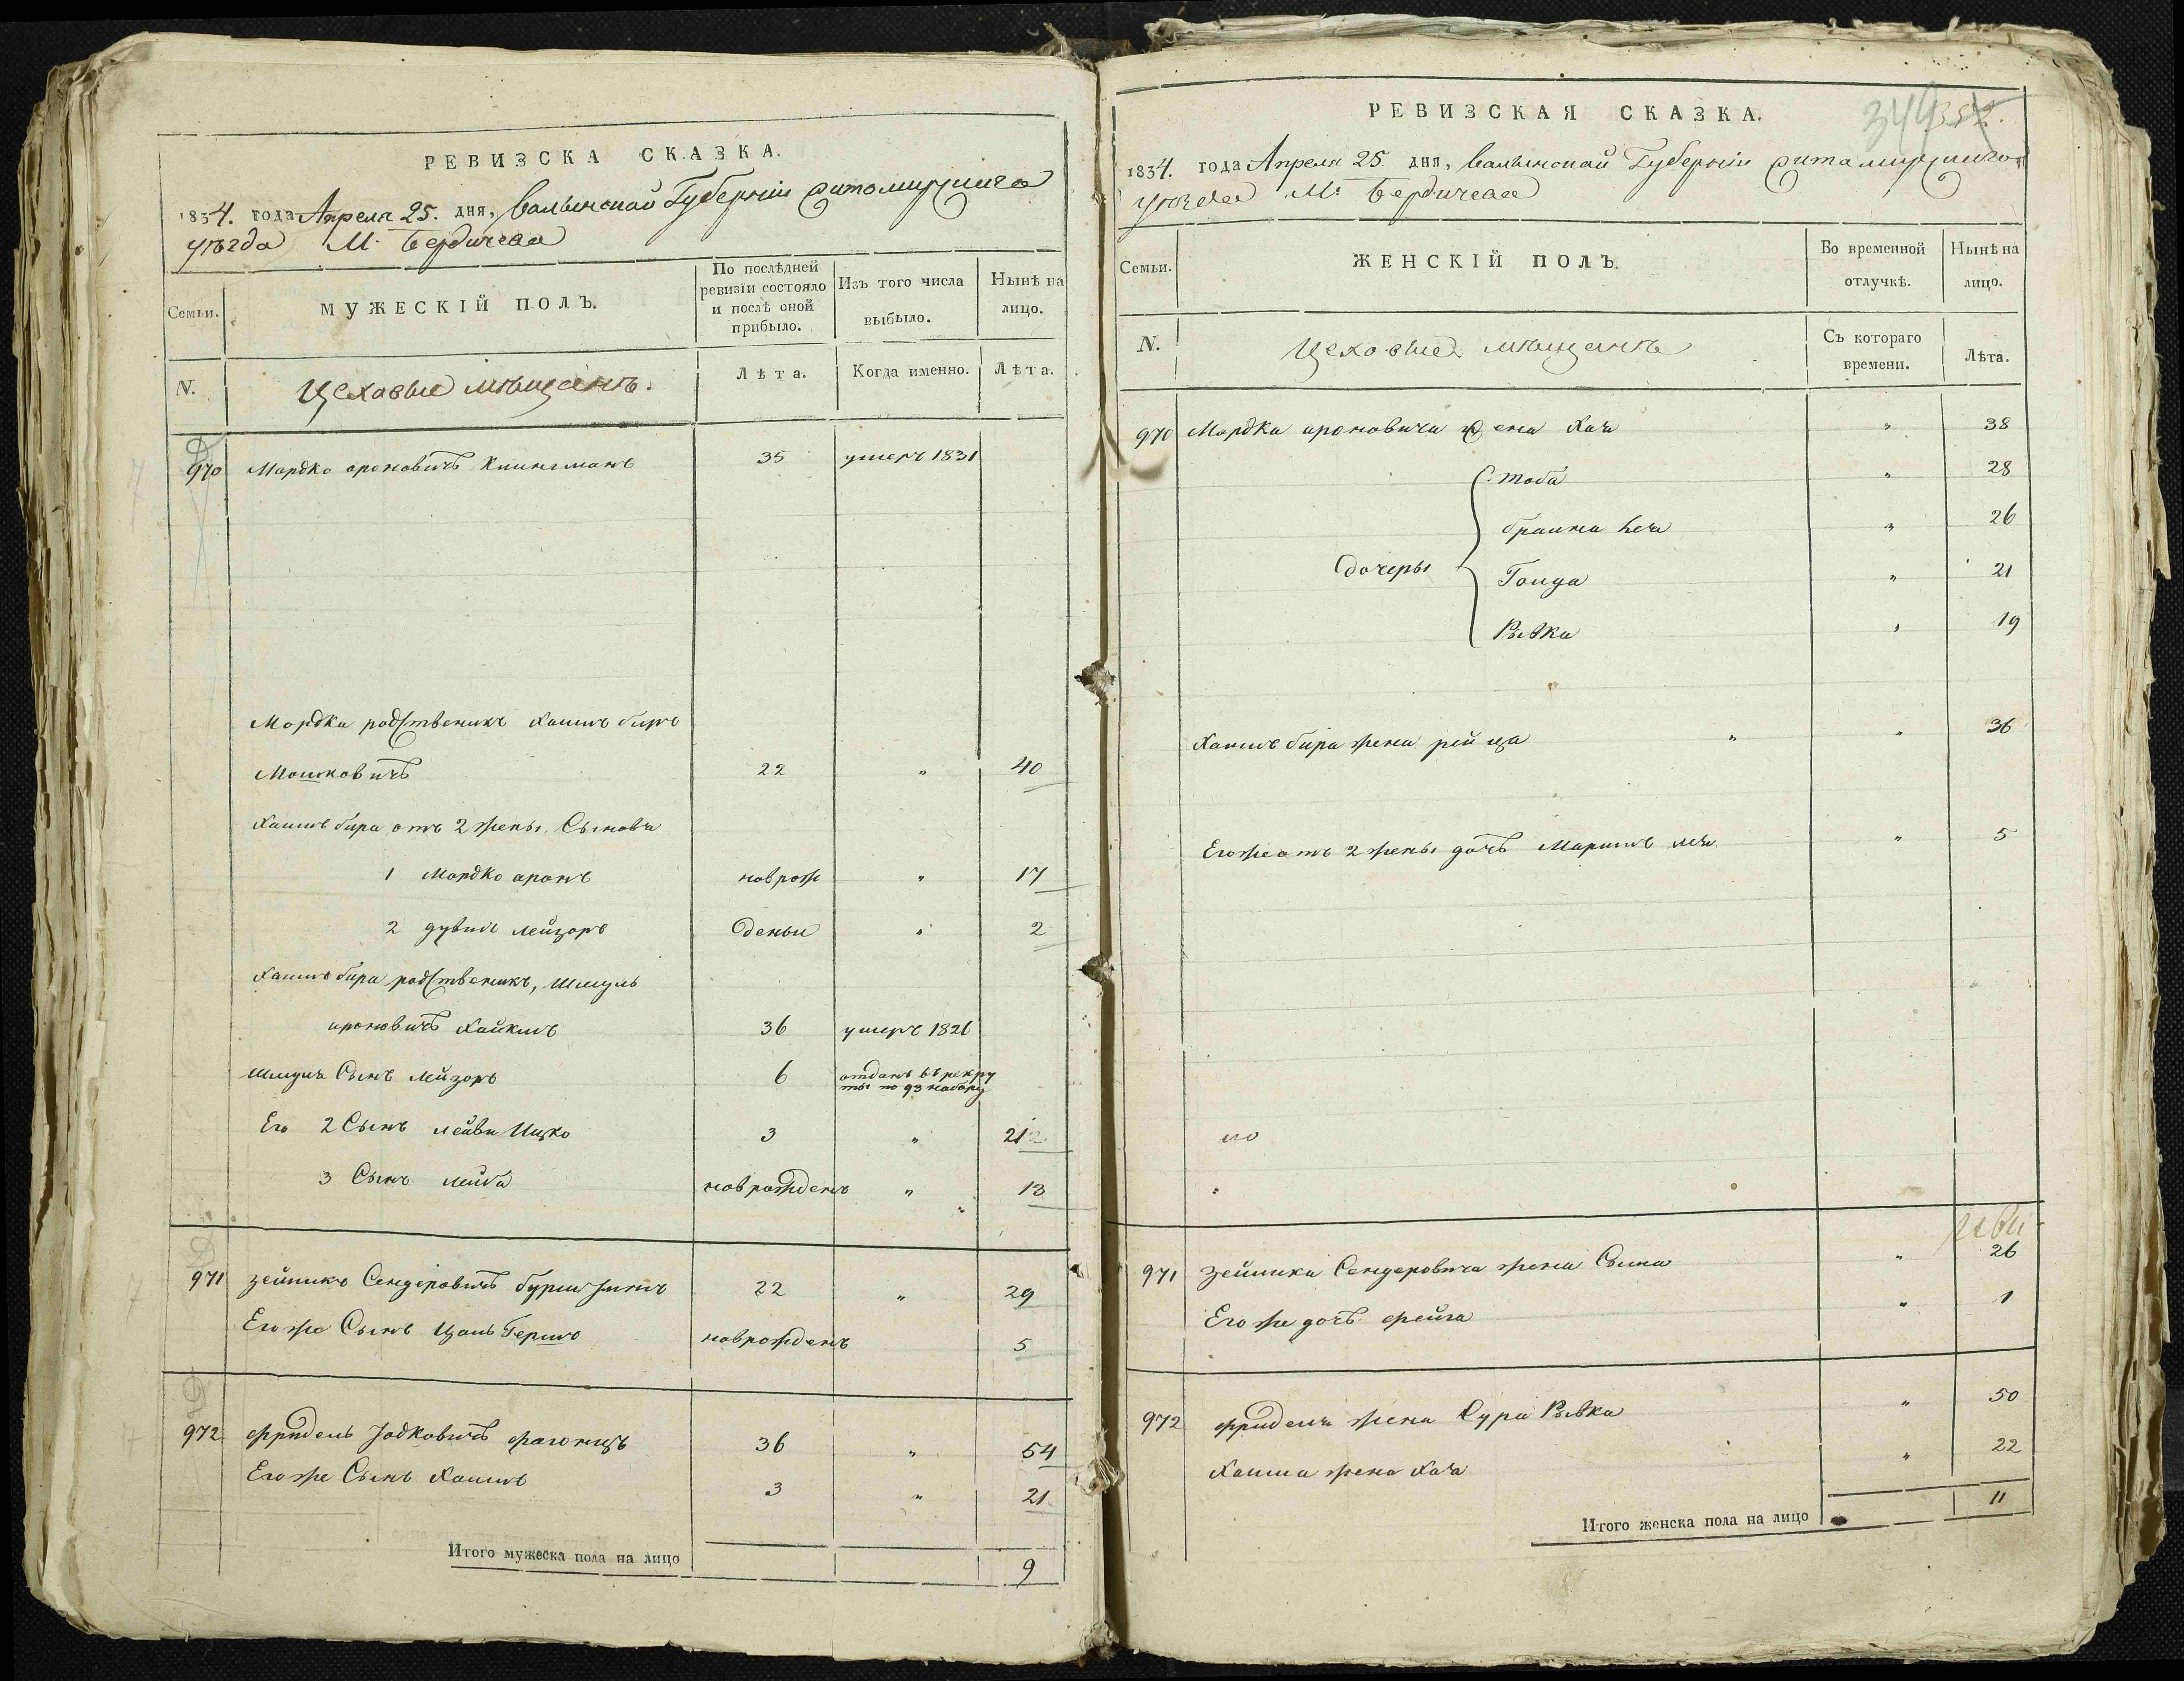 РЕВИЗСКА СКАЗКА.
1834. года Апреля 25. дня, Валынской Губернiи Житомирскаго
уѣзда М. Бердичева
Семьи.
МУЖЕСКIЙ ПОЛЪ.
По послѣдней ревизiи состояло и послѣ оной прибыло.
Изъ того числа выбыло.
Нынѣ на лицо.
N.
Цеховые мѣщанъ.
Лѣта.
Когда именно.
Лѣта.
970 Мордко ароновичъ Клингманъ 35 умеръ 1831
Мордка родственикъ Хаимъ биръ
Мошковичъ 22 " 40
Хаимъ бира отъ 2 жены Сыновя
1 Мордко аронъ новрож " 17
2 дувидъ лейзоръ дены " 2
Хаимъ бира родственикъ, Шмуль
ароновичъ Хаикимъ 36 умеръ 1826
Шмуля Сынъ Лейзоръ 6 отданъ въ рекру
ты по 93 набору
Его 2 Сынъ лейви Ицко 3 " 21
3 Сынъ лейба новрожденъ " 13
971 Зейликъ Сендеровичъ 22 " 29
Егоже Сынъ Цаль Гершъ новрожденъ 5
972 фридель Іодковичъ 36 " 54
Егоже Сынъ Хаимъ 3 " 21
Итого мужеска пола на лицо 9
РЕВИЗСКАЯ СКАЗКА.
344 352.
1834. года Апреля 25 дня, Валынской Губернiи Житомирскаго
уѣзда М. Бердичева
Семьи.
ЖЕНСКIЙ ПОЛЪ.
Во временной отлучкѣ.
Нынѣ на лицо.
N.
Цеховые мѣщанъ
Съ котораго времени.
Лѣта.
970 Мордка ароновича жена Хая " 38
Тоба " 28
браина Хая " 26
дочеры
Гоида " 21
Рывка " 19
Хаимъ бира жена рейза " " 36
Егоже отъ 2 жены дочъ Маримъ лея " 5
971 Зейлика Сендеровича жена Сима " 26
Его же дочъ фейга " 1
972 фриделя жена Сура Рывка " 50
Хаима жена Хая " 22
Итого женска пола на лицо 11